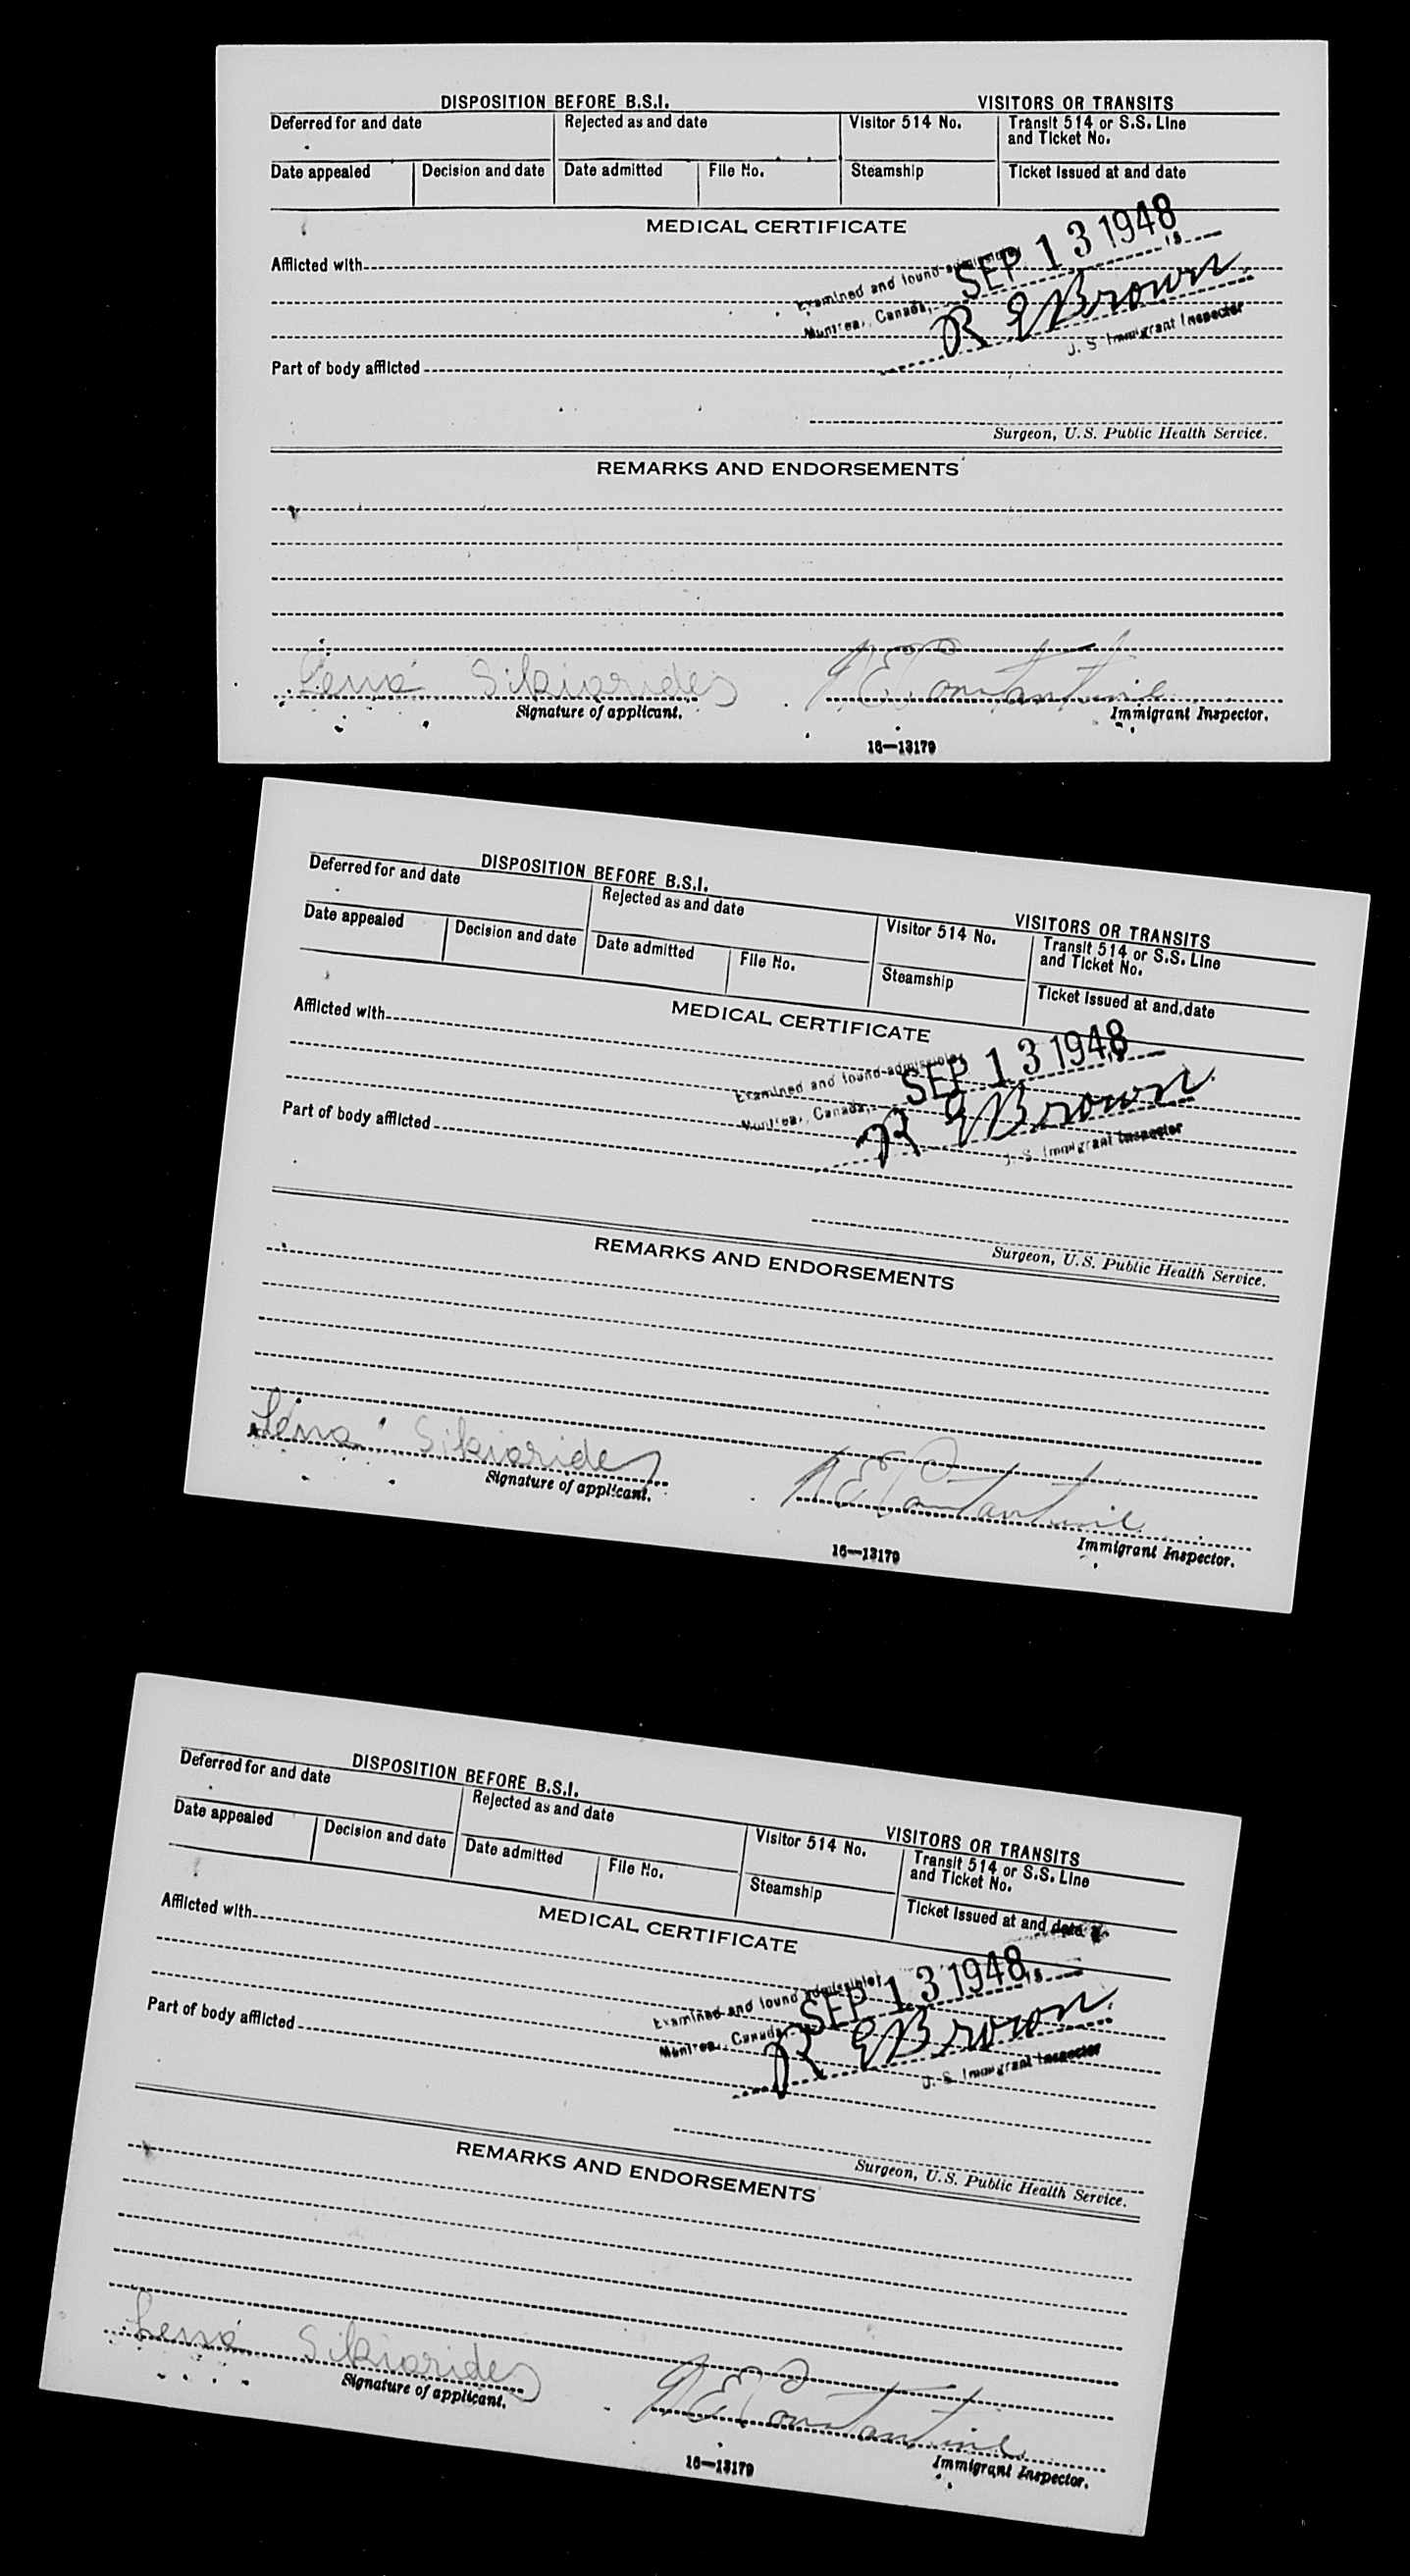 DISPOSITION BEFORE B.S.I. VISITORS OR TRANSITS
Deferred for and date Rejected as and date Visitor 514 No. Transit 514 or S.S. Line
and Ticket No.
Date appealed Decision and date Date admitted File No. Steamship Ticket issued at and date
MEDICAL CERTIFICATE
SEP 13 1948
Afflicted with
Examined and found admissible
Montreal, Canada,
R E Brown
U. S. Immigrant Inspector
Part of body afflicted
Surgeon, U.S. Public Health Service.
REMARKS AND ENDORSEMENTS
Lena Sikiarides N E Constantine
Signature of applicant. Immigrant Inspector.
16—13179
DISPOSITION BEFORE B.S.I. VISITORS OR TRANSITS
Deferred for and date Rejected as and date Visitor 514 No. Transit 514 or S.S. Line
and Ticket No.
Date appealed Decision and date Date admitted File No. Steamship Ticket issued at and date
MEDICAL CERTIFICATE
SEP 13 1948
Afflicted with
Examined and found admissible
Montreal, Canada,
R E Brown
U. S. Immigrant Inspector
Part of body afflicted
Surgeon, U.S. Public Health Service.
REMARKS AND ENDORSEMENTS
Lena Sikiarides N E Constantine
Signature of applicant. Immigrant Inspector.
16—13179
DISPOSITION BEFORE B.S.I. VISITORS OR TRANSITS
Deferred for and date Rejected as and date Visitor 514 No. Transit 514 or S.S. Line
and Ticket No.
Date appealed Decision and date Date admitted File No. Steamship Ticket issued at and date
MEDICAL CERTIFICATE
SEP 13 1948
Afflicted with
Examined and found admissible
Montreal, Canada,
R E Brown
U. S. Immigrant Inspector
Part of body afflicted
Surgeon, U.S. Public Health Service.
REMARKS AND ENDORSEMENTS
Lena Sikiarides N E Constantine
Signature of applicant. Immigrant Inspector.
16—13179